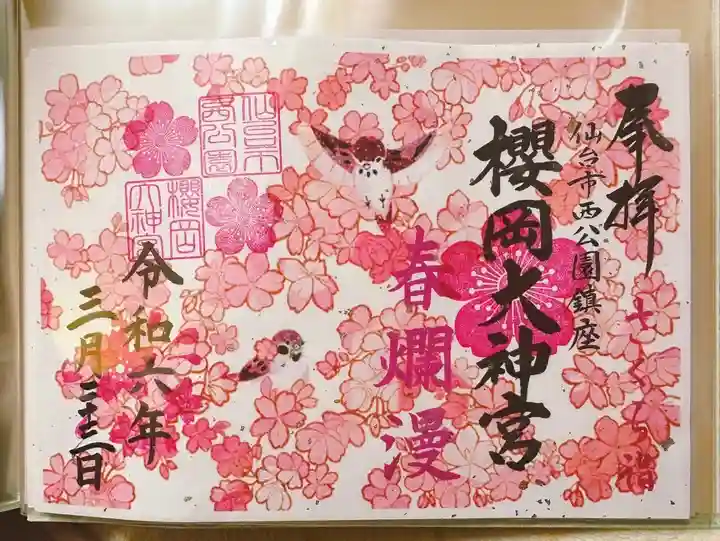 奉拝
仙台市西公園鎮座
櫻岡大神宮
春爛漫
令和六年
三月二十三日
仙臺市
西公園
櫻岡
大神宮